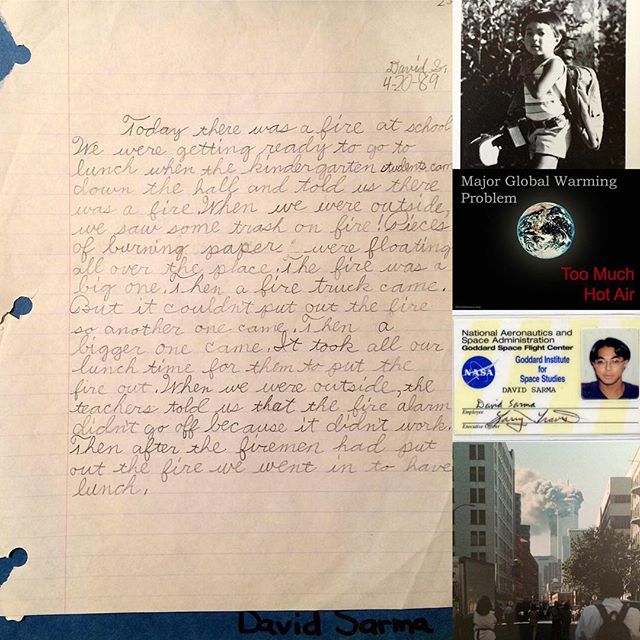 David S.
4-20-89
Today there was a fire at school
We were getting ready to go to
lunch when the kindergarten students cam
down the hall and told us there
was a fire. When we were outside,
we saw some trash on fire! Pieces
of burning paper were floating
all over the place. The fire was a
big one. Then a fire truck came.
But it couldn't put out the fire
so another one came. Then a
bigger one came. It took all our
lunch time for them to put the
fire out. When we were outside, the
teachers told us that the fire alarm
didn't go off because it didn't work.
Then after the firemen had put
out the fire we went in to have
lunch.
David Sarma
Major Global Warming
Problem
Too Much
Hot Air
National Aeronautics and
Space Administration
Goddard Space Flight Center
Goddard Institute
for
Space Studies
NASA
DAVID SARMA
David Sarma
Employee
Executive Officer